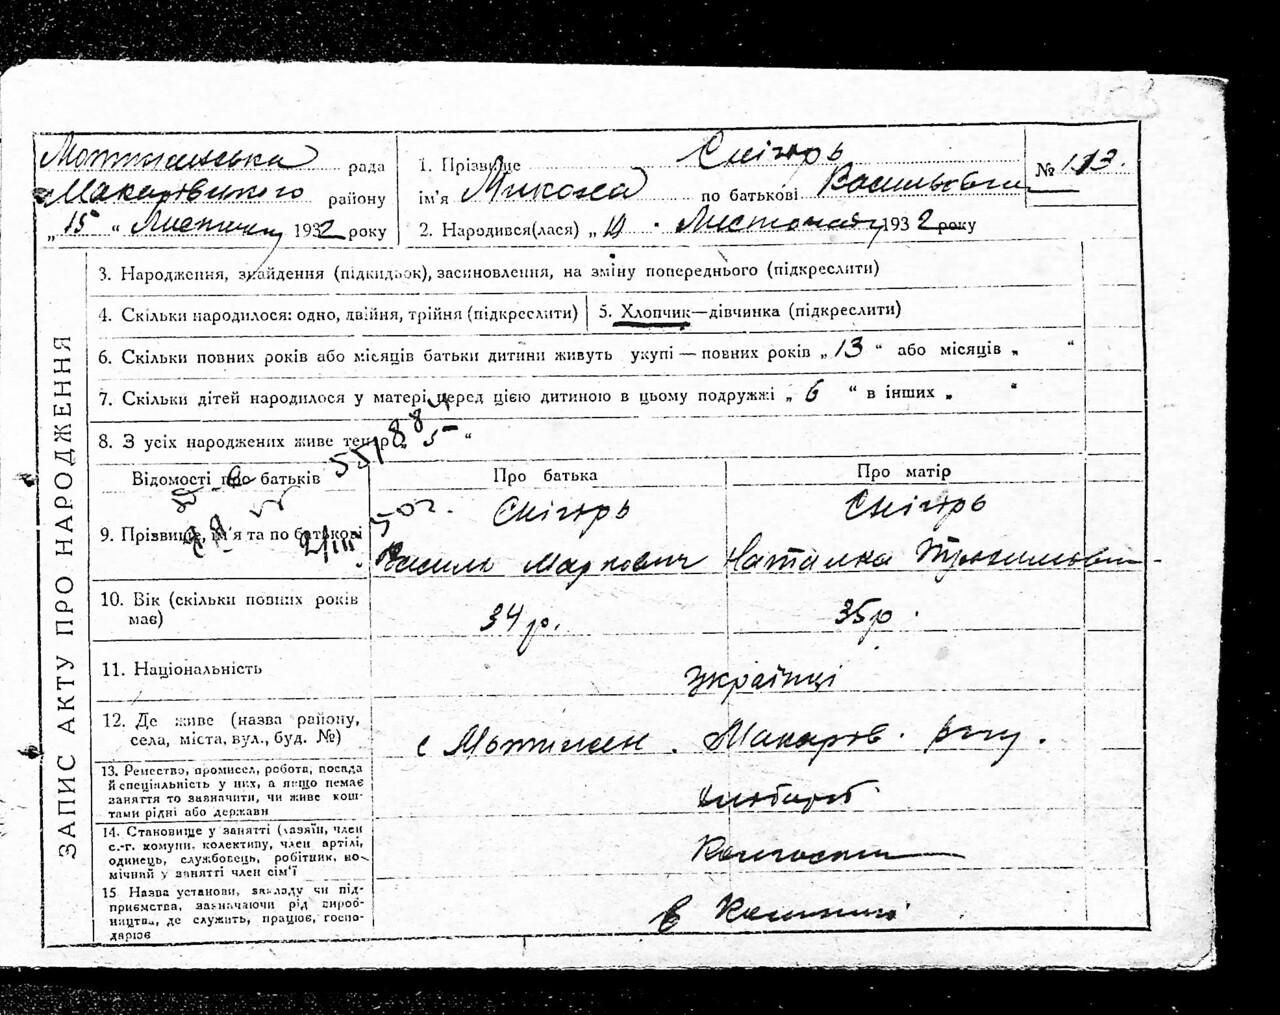 ЗАПИС АКТУ ПРО НАРОДЖЕННЯ
Мотижинська рада
Макарівського району
„ 15 “ 1932 року
1. Прізвище Снігирь
ім'я Микола по батькові Васильович
2. Народився(лася) „ 1932 року
№ 113.
3. Народження, знайдення (підкидьок), засиновлення, на зміну попереднього (підкреслити)
4. Скільки народилося: одно, двійня, трійня (підкреслити)
5. Хлопчик—дівчинка (підкреслити)
6. Скільки повних років або місяців батьки дитини живуть укупі — повних років „ 13 “ або місяців „ “
7. Скільки дітей народилося у матері перед цією дитиною в цьому подружжі „ 6 “ в інших „ “
8. З усіх народжених живе тепер „ 5 “
Відомості про батьків
Про батька
Про матір
9. Прізвище, ім'я та по батькові
Снігирь
Василь Маркович
Снігирь
Наталка
10. Вік (скільки повних років
має)
34 р.
35 р.
11. Національність
Українці
12. Де живе (назва району,
села, міста, вул., буд. №)
с Мотижин. Макаров. р-ну.
13. Ремество, промисел, робота, посада
й спеціяльність у них, а якщо немає
заняття то зазначити, чи живе кош-
тами рідні або держави
хлібороб
14. Становище у занятті (хазяїн, член
с.-г. комуни, колективу, член артілі,
одинець, службовець, робітник, по-
мічний у занятті член сім'ї
Колгоспник
15 Назва установи, закладу чи під-
приємства, зазначаючи рід вироб-
ництва, де служить, працює, госпо-
дарює
в